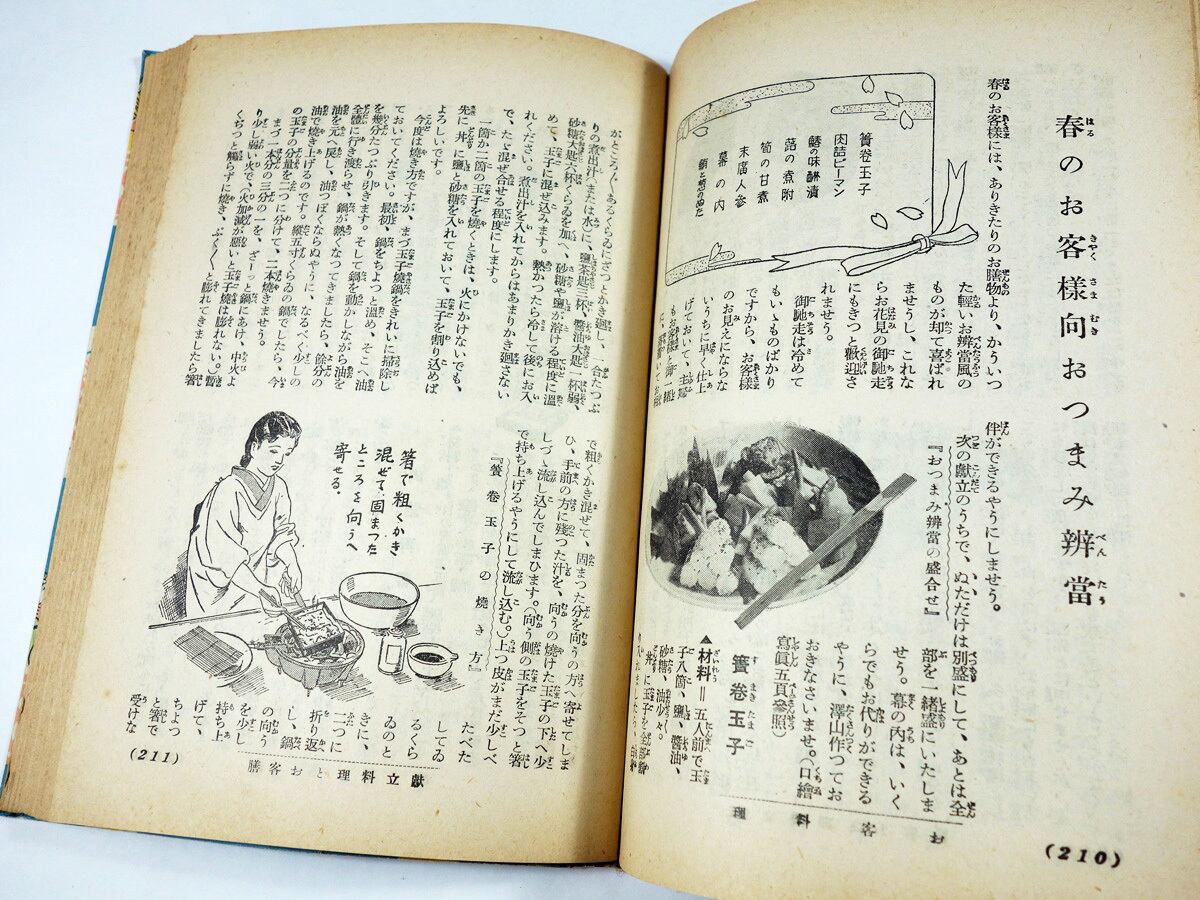 春のお客様向おつまみ辨當
春のお客様には、ありきたりのお膳物より、かういつ
た輕いお辨當風の
ものが却て喜ばれ
ませうし、これな
らお花見の御馳走
にもきつと歡迎さ
れませう。
御馳走は冷めて
もいゝものばかり
ですから、お客様
のお見えにならな
いうちに早く仕上
げておいて、主婦
もお客様と御一緒
簀卷玉子
肉詰ピーマン
鰆の味醂漬
蕗の煮附
筍の甘煮
末廣人參
幕の内
伴ができるやうにしませう。
次の獻立のうちで、ぬただけは別盛にして、あとは全
部を一緒盛にいたしま
せう。幕の内は、いく
らでもお代りができる
やうに、澤山作つてお
おきなさいませ。(口繪
寫眞五頁參照)
『おつまみ辨當の盛合せ』
簀卷玉子
▲材料=五人前で玉
子八箇、鹽、醬油、
砂糖、油少々。
丼に玉子を全部割
お客料理
(210)
がところ〴〵あるくらゐにざつとかき廻し、一合たつぷ
りの煮出汁(または水)に、鹽茶匙三杯、醬油大匙一杯弱、
砂糖大匙六杯くらゐを加へ、砂糖や鹽が溶ける程度に溫
めて、玉子に混ぜ込みます。熱かつたら冷して後にお入
れください。煮出汁を入れてからはあまりかき廻さない
で、たゞ混ぜ合せる程度にします。
一箇か二箇の玉子を燒くときは、火にかけないでも、
先に丼に鹽と砂糖を入れておいて、玉子を割り込めば
よろしいです。
今度は燒き方ですが、まづ玉子燒鍋をきれいに掃除し
ておいてください。最初、鍋をちよつと溫め、そこへ油
を幾分たつぷり引きます。そして鍋を動かしながら油を
全體に行き渡らせ、鍋が熱くなつてきましたら、餘分の
油を元へ戻し、油つぽくならぬやうに、なるべく少しの
油で燒き上げるのです。縱五寸くらゐの鍋でしたら、今
の玉子の分量を二つに分けて、二本燒きませう。
まづ一本分の三分の一を、ざーつと鍋にあけ、中火よ
り少し弱い火で、(火加減が惡いと玉子燒は膨れない。)暫
くぢつと觸らずに燒き、ぶく〳〵と膨れてきましたら箸
で粗くかき混ぜて、固まつた分を向うの方へ寄せてしま
ひ、手前の方に殘つた汁を、向うの燒けた玉子の下へ少
しづゝ流し込んでしまひます。(向う側の玉子をそつと箸
で持ち上げるやうにして流し込む。)上つ皮がまだ少しべ
たべた
してゐ
るくら
ゐのと
きに、
二つに
折り返
し、鍋
の向う
を少し
持ち上
げて、
ちよつ
と箸で
受けな
『簀卷玉子の燒き方』
箸で粗くかき
混ぜて固まつた
ところを向うへ
寄せる。
獻立料理とお客膳
(211)